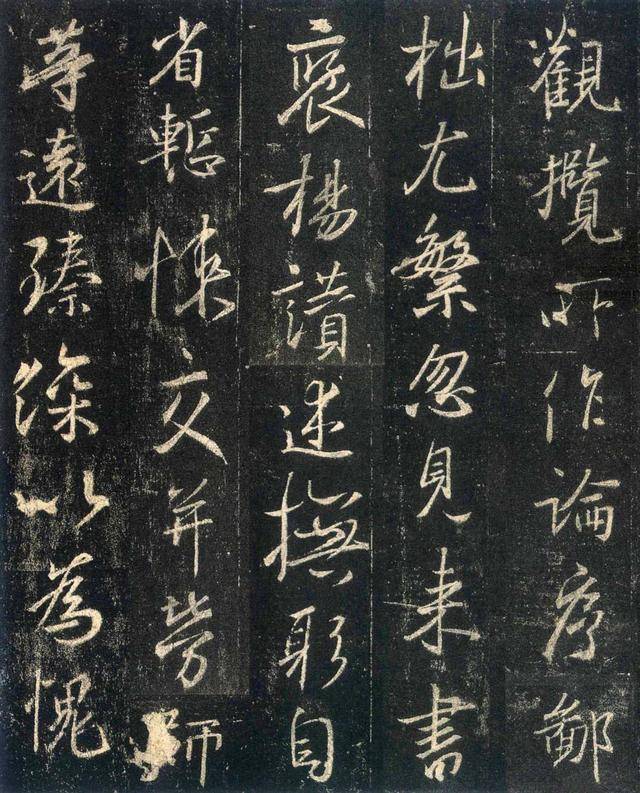 觀攬所作論序鄙
拙尤繁忽見来書
褒揚讚述撫躬自
省慙悚交并勞師
等遠臻深以為愧